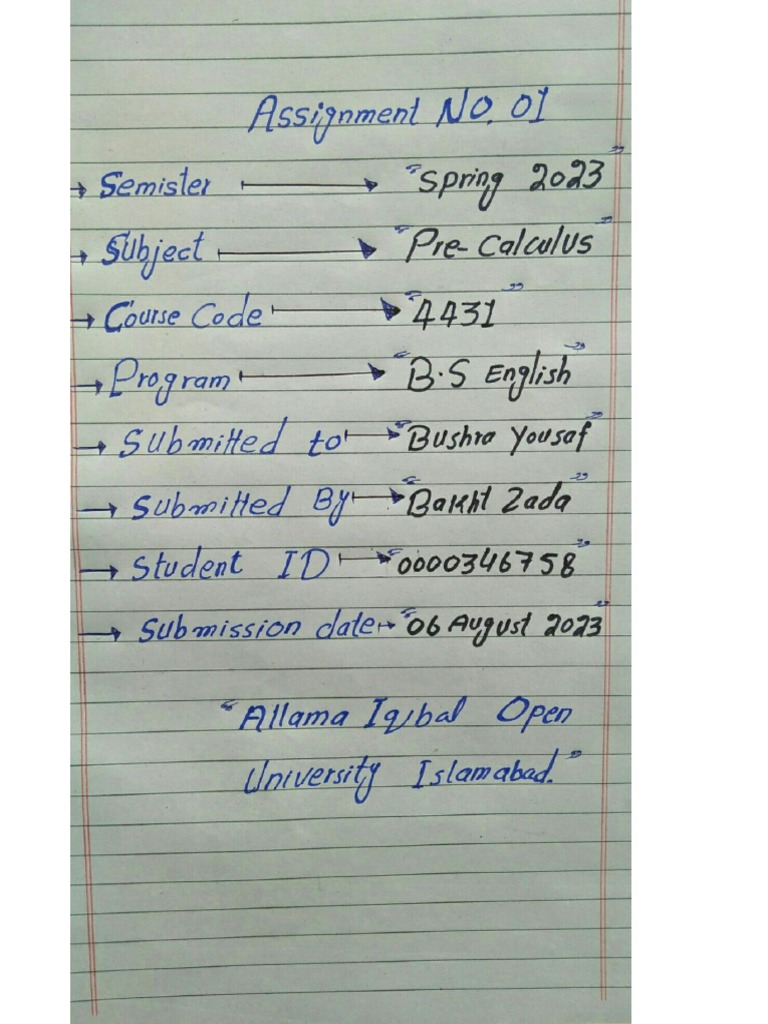 Assignment NO. 01
→ Semister → "Spring 2023"
→ Subject → "Pre-Calculus"
→ Course Code → "4431"
→ Program → "B.S English"
→ Submitted to → "Bushra Yousaf"
→ Submitted By → "Bakht Zada"
→ Student ID → "0000346758"
→ Submission date → "06 August 2023"
"Allama Iqbal Open
University Islamabad."